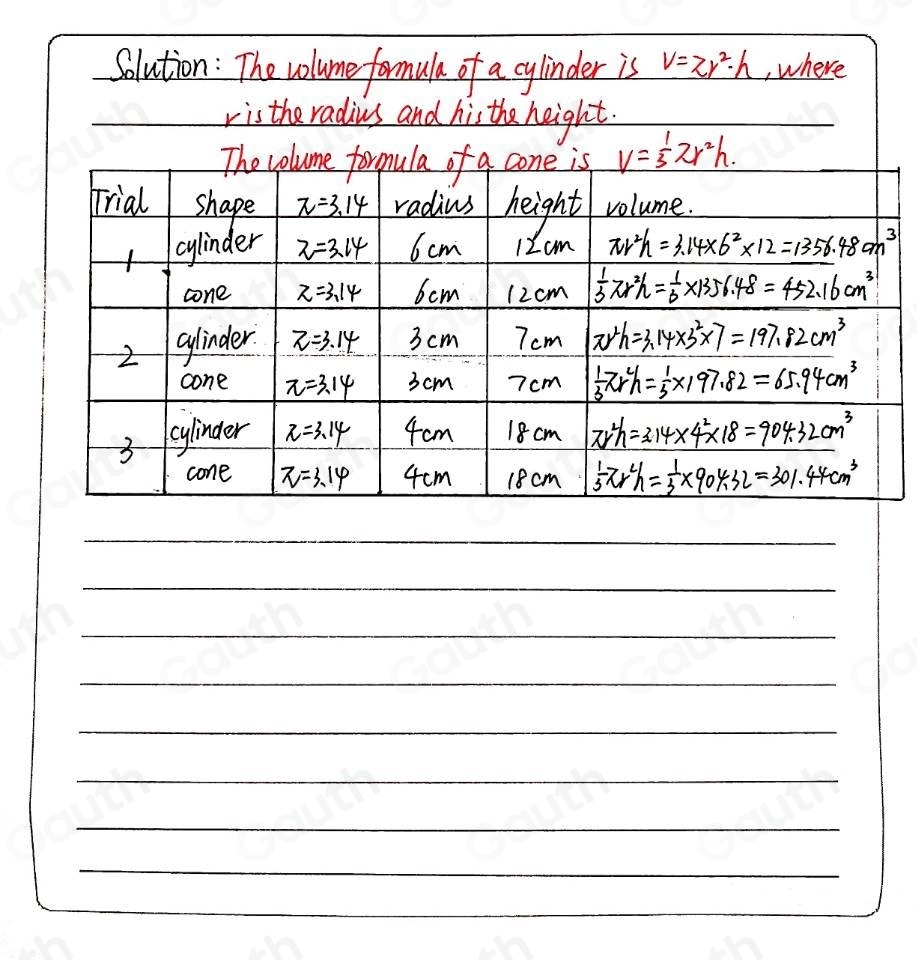 Solution: The volume formula of a cylinder is V=πr²·h, where
r is the radius and h is the height.
The volume formula of a cone is V=⅓πr²h.
Trial shape π=3.14 radius height volume.
1 cylinder π=3.14 6cm 12cm πr²h=3.14×6²×12=1356.48cm³
cone π=3.14 6cm 12cm ⅓πr²h=⅓×1356.48=452.16cm³
2 cylinder π=3.14 3cm 7cm πr²h=3.14×3²×7=197.82cm³
cone π=3.14 3cm 7cm ⅓πr²h=⅓×197.82=65.94cm³
3 cylinder π=3.14 4cm 18cm πr²h=3.14×4²×18=904.32cm³
cone π=3.14 4cm 18cm ⅓πr²h=⅓×904.32=301.44cm³